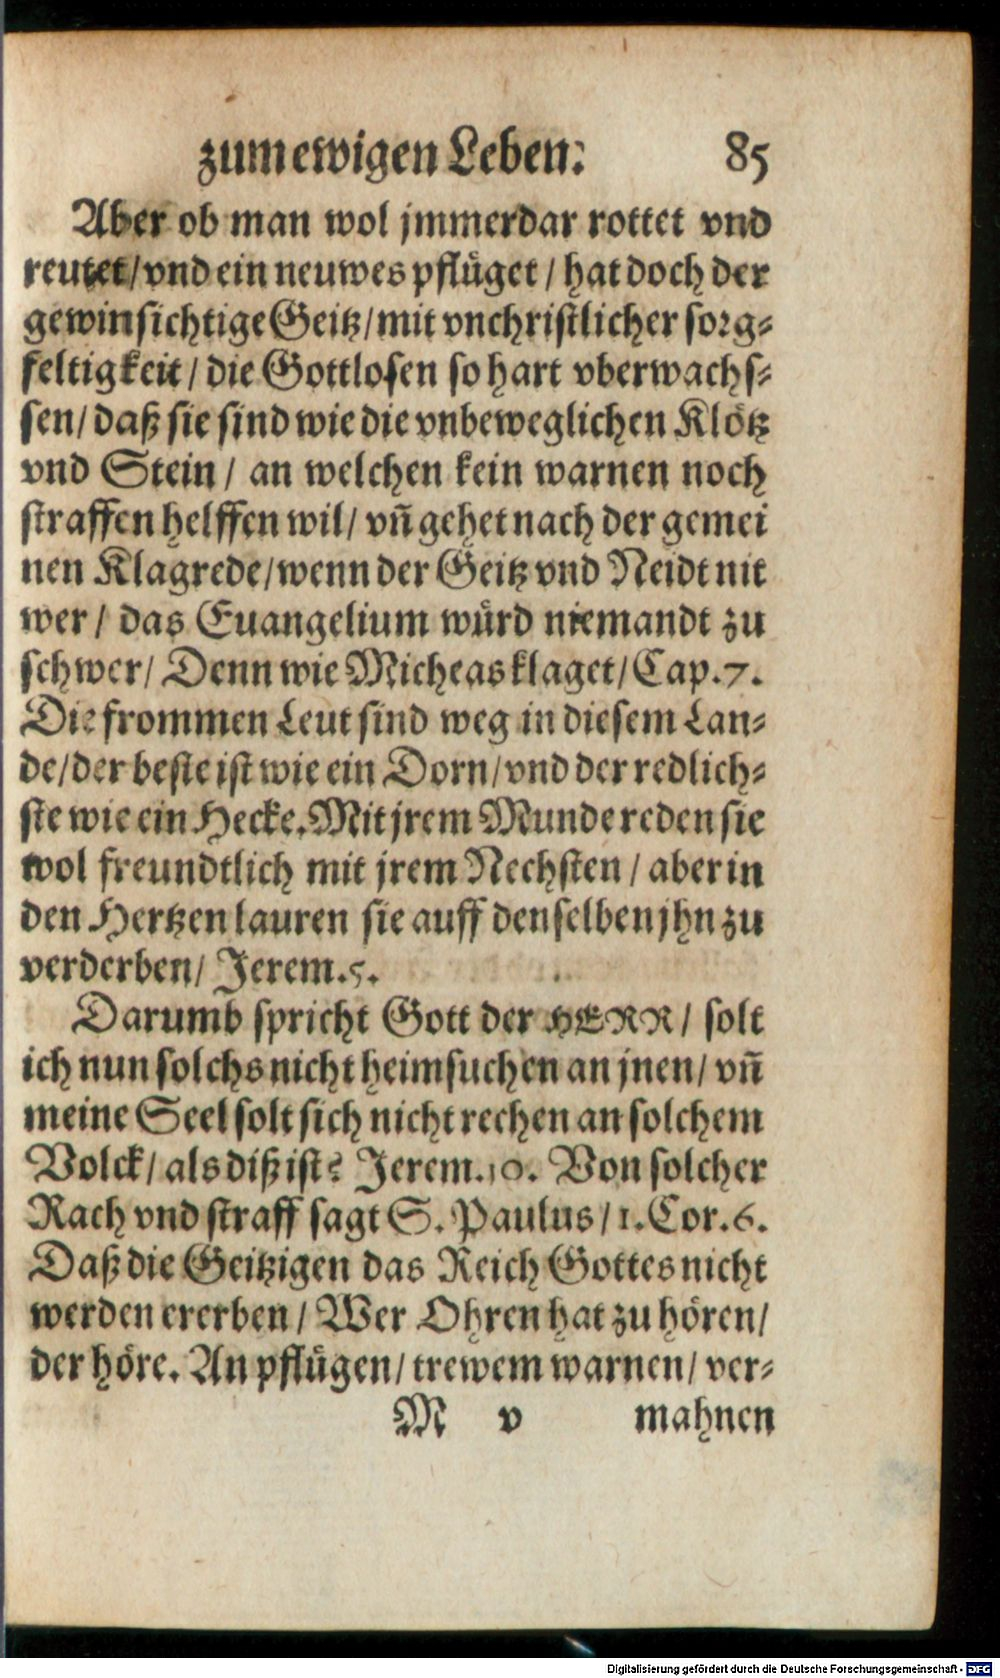 zum ewigen Leben. 85
Aber ob man wol jmmerdar rottet vnd
reutet / vnd ein neuwes pflüget / hat doch der
gewinsichtige Geitz / mit vnchristlicher sorg-
feltigkeit / die Gottlosen so hart vberwachs-
sen / daß sie sind wie die vnbeweglichen Klötz
vnd Stein / an welchen kein warnen noch
straffen helffen wil / vñ gehet nach der gemei
nen Klagrede / wenn der Geitz vnd Neidt nit
wer / das Euangelium würd niemandt zu
schwer / Denn wie Micheas klaget / Cap. 7.
Die frommen Leut sind weg in diesem Lan-
de / der beste ist wie ein Dorn / vnd der redlich-
ste wie ein Hecke. Mit jrem Munde reden sie
wol freundtlich mit jrem Nechsten / aber in
den Hertzen lauren sie auff denselben jhn zu
verderben / Jerem. 5.
Darumb spricht Gott der HERR / solt
ich nun solchs nicht heimsuchen an jnen / vñ
meine Seel solt sich nicht rechen an solchem
Volck / als diß ist? Jerem. 10. Von solcher
Rach vnd straff sagt S. Paulus / 1. Cor. 6.
Daß die Geitzigen das Reich Gottes nicht
werden ererben / Wer Ohren hat zu hören /
der höre. An pflügen / trewem warnen / ver-
M v mahnen
Digitalisierung gefördert durch die Deutsche Forschungsgemeinschaft - DFG